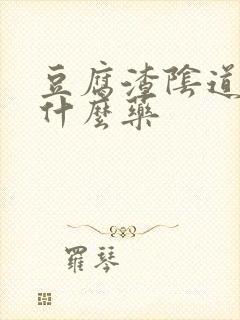 豆腐渣陰道
什麼藥
羅琴